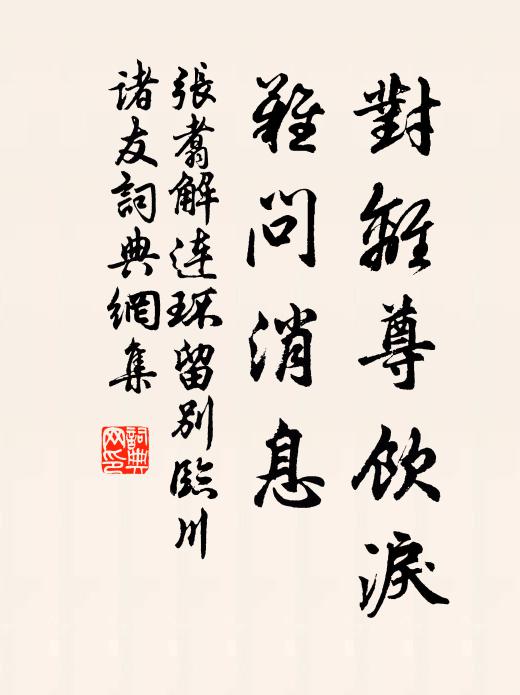 對離尊飲淚
難問消息
張翥解連环留別臨川
諸友詞典網集
詞典
网印